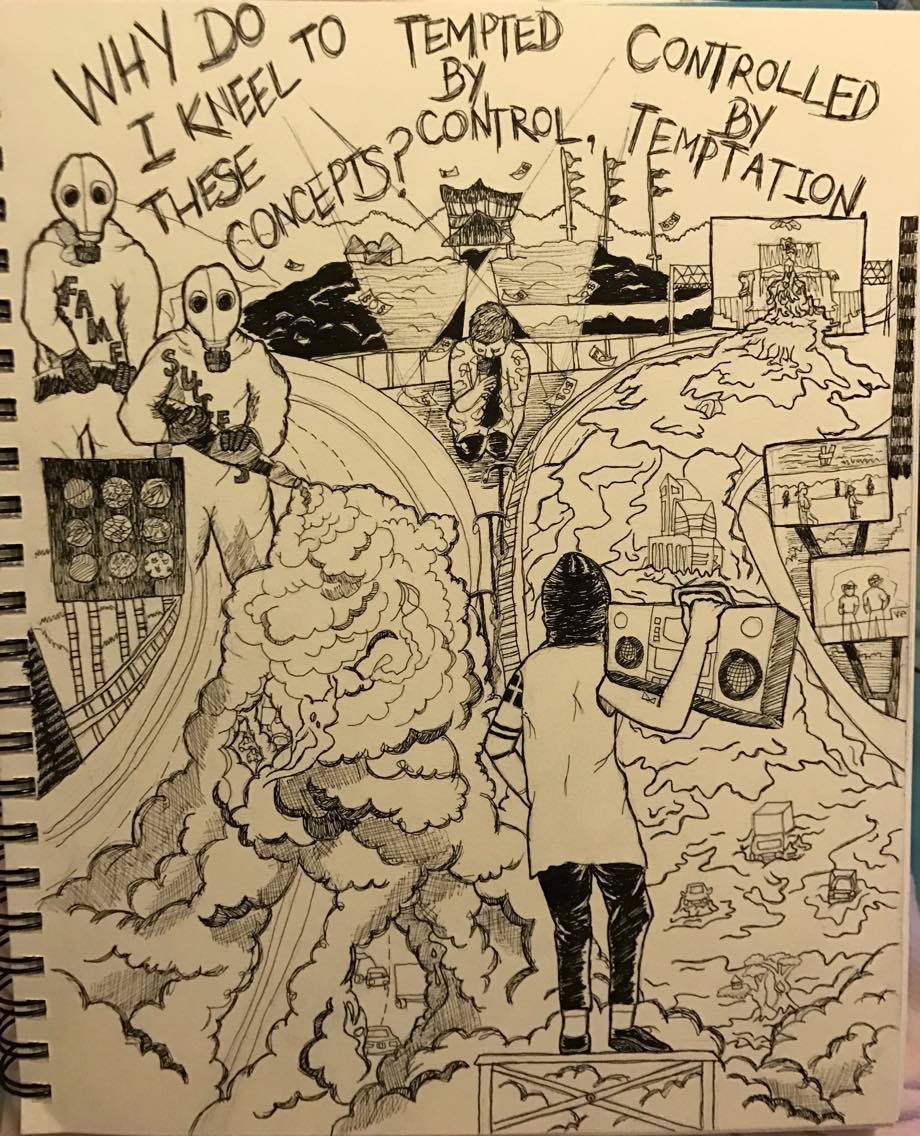 WHY DO
I KNEEL TO
THESE
CONCEPTS?
TEMPTED
BY
CONTROL,
CONTROLLED
BY
TEMPTATION
FAME